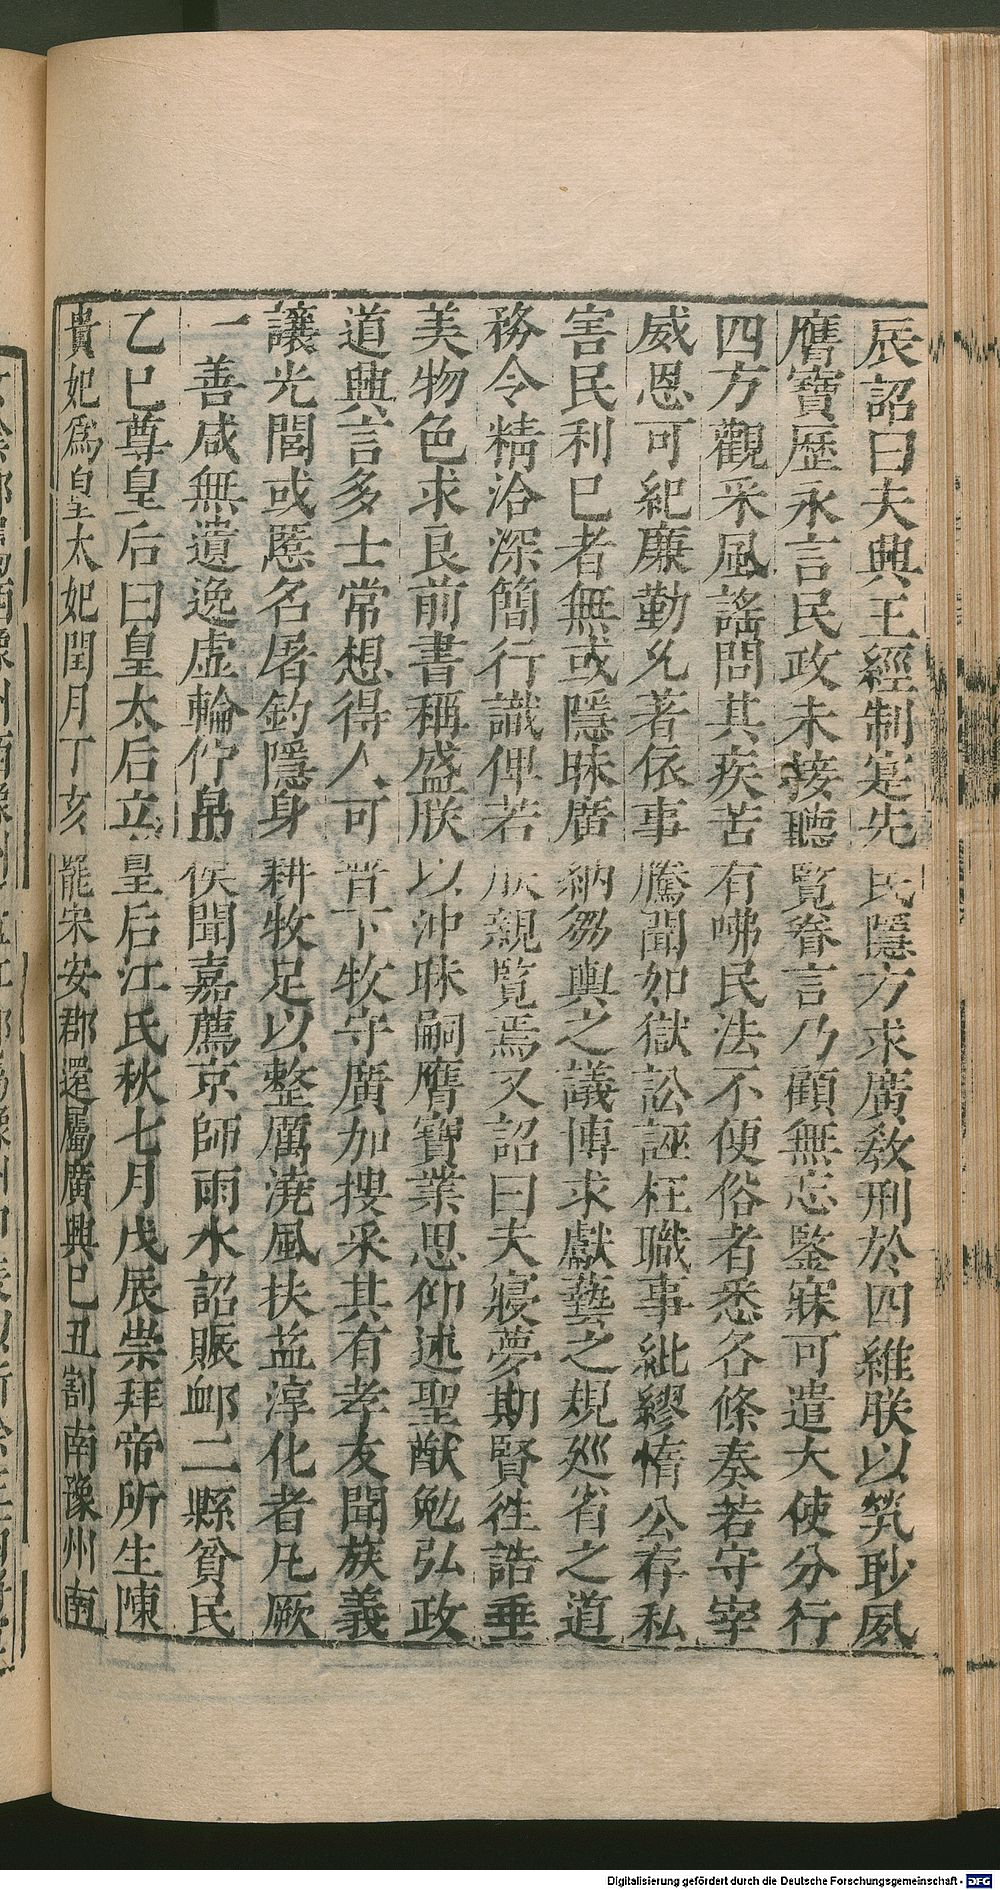 辰詔曰夫興王經制寔先民隱方求廣敎刑於四維朕以煢眇夙
膺寶歷永言民政未接聽覽眷言乃顧無忘鑒寐可遣大使分行
四方觀采風謠問其疾苦有咈民法不便俗者悉各條奏若守宰
威恩可紀廉勤允著依事騰聞如獄訟誣枉職事紕繆惰公存私
害民利己者無或隱昧廣納芻輿之議博求獻藝之規巡省之道
務令精洽深簡行識俾若朕親覽焉又詔曰夫寢夢期賢徃誥垂
美物色求良前書稱盛朕以沖昧嗣膺寶業思仰述聖猷勉弘政
道興言多士常想得人可普下牧守廣加搜采其有孝友聞族義
讓光閭或匿名屠釣隱身耕牧足以整厲澆風扶益淳化者凡厥
一善咸無遺逸虛輪佇帛俟聞嘉薦京師雨水詔賑䘏二縣貧民
乙巳尊皇后曰皇太后立皇后江氏秋七月戊辰崇拜帝所生陳
貴妃爲皇太妃閏月丁亥罷宋安郡還屬廣興己丑割南豫州南
Digitalisierung gefördert durch die Deutsche Forschungsgemeinschaft - DFG